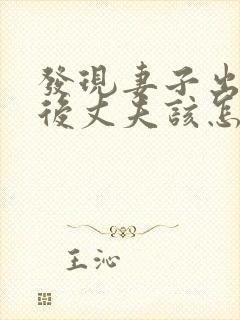 發現妻子出
後丈夫該怎
王沁